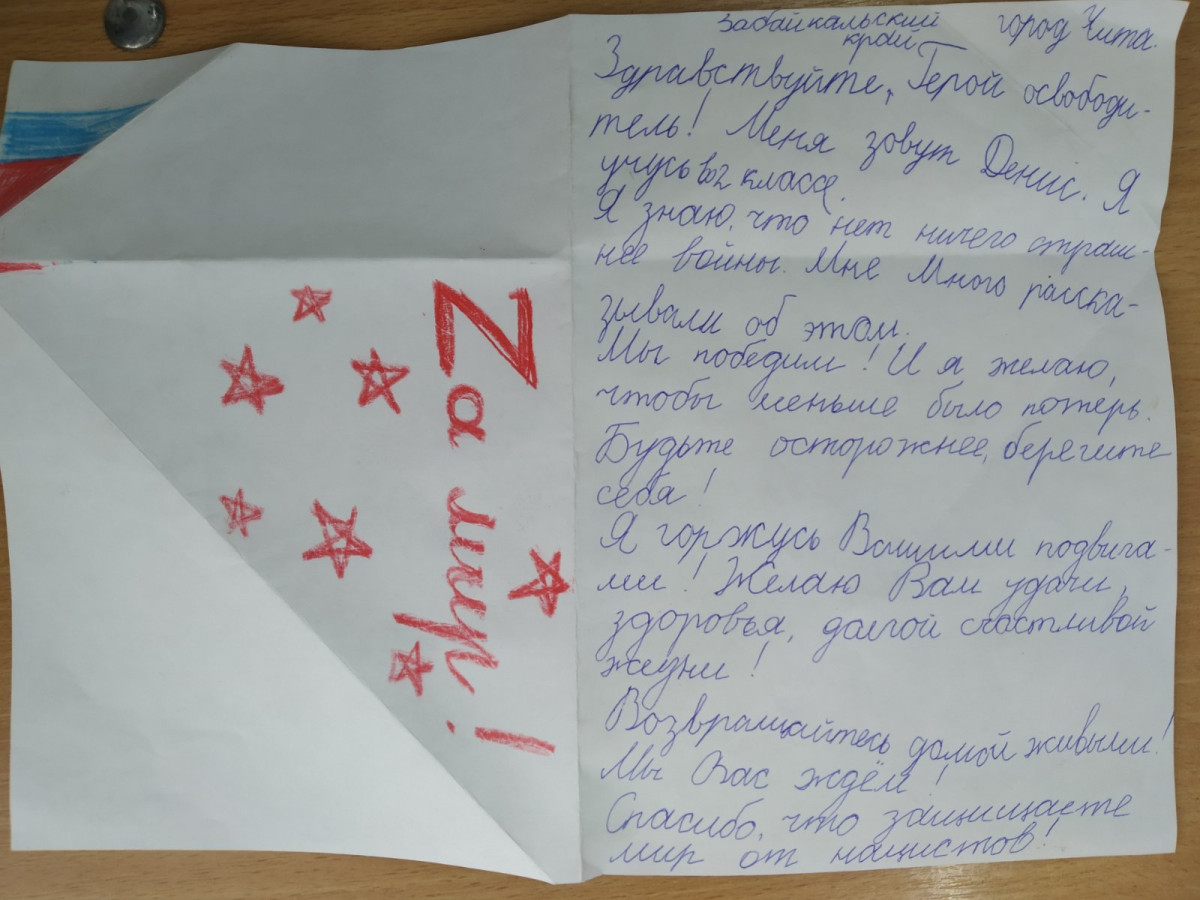 Забайкальский край город Чита.
Здравствуйте, Герой освободи-
тель! Меня зовут Денис. Я
учусь во 2 классе.
Я знаю, что нет ничего страш-
нее войны. Мне много расска-
зывали об этом.
Мы победим! И я желаю,
чтобы меньше было потерь.
Будьте осторожнее, берегите
себя!
Я горжусь Вашими подвига-
ми! Желаю Вам удачи,
здоровья, долгой счастливой
жизни!
Возвращайтесь домой живыми!
Мы Вас ждём!
Спасибо, что защищаете
мир от нацистов!
Zа мир!